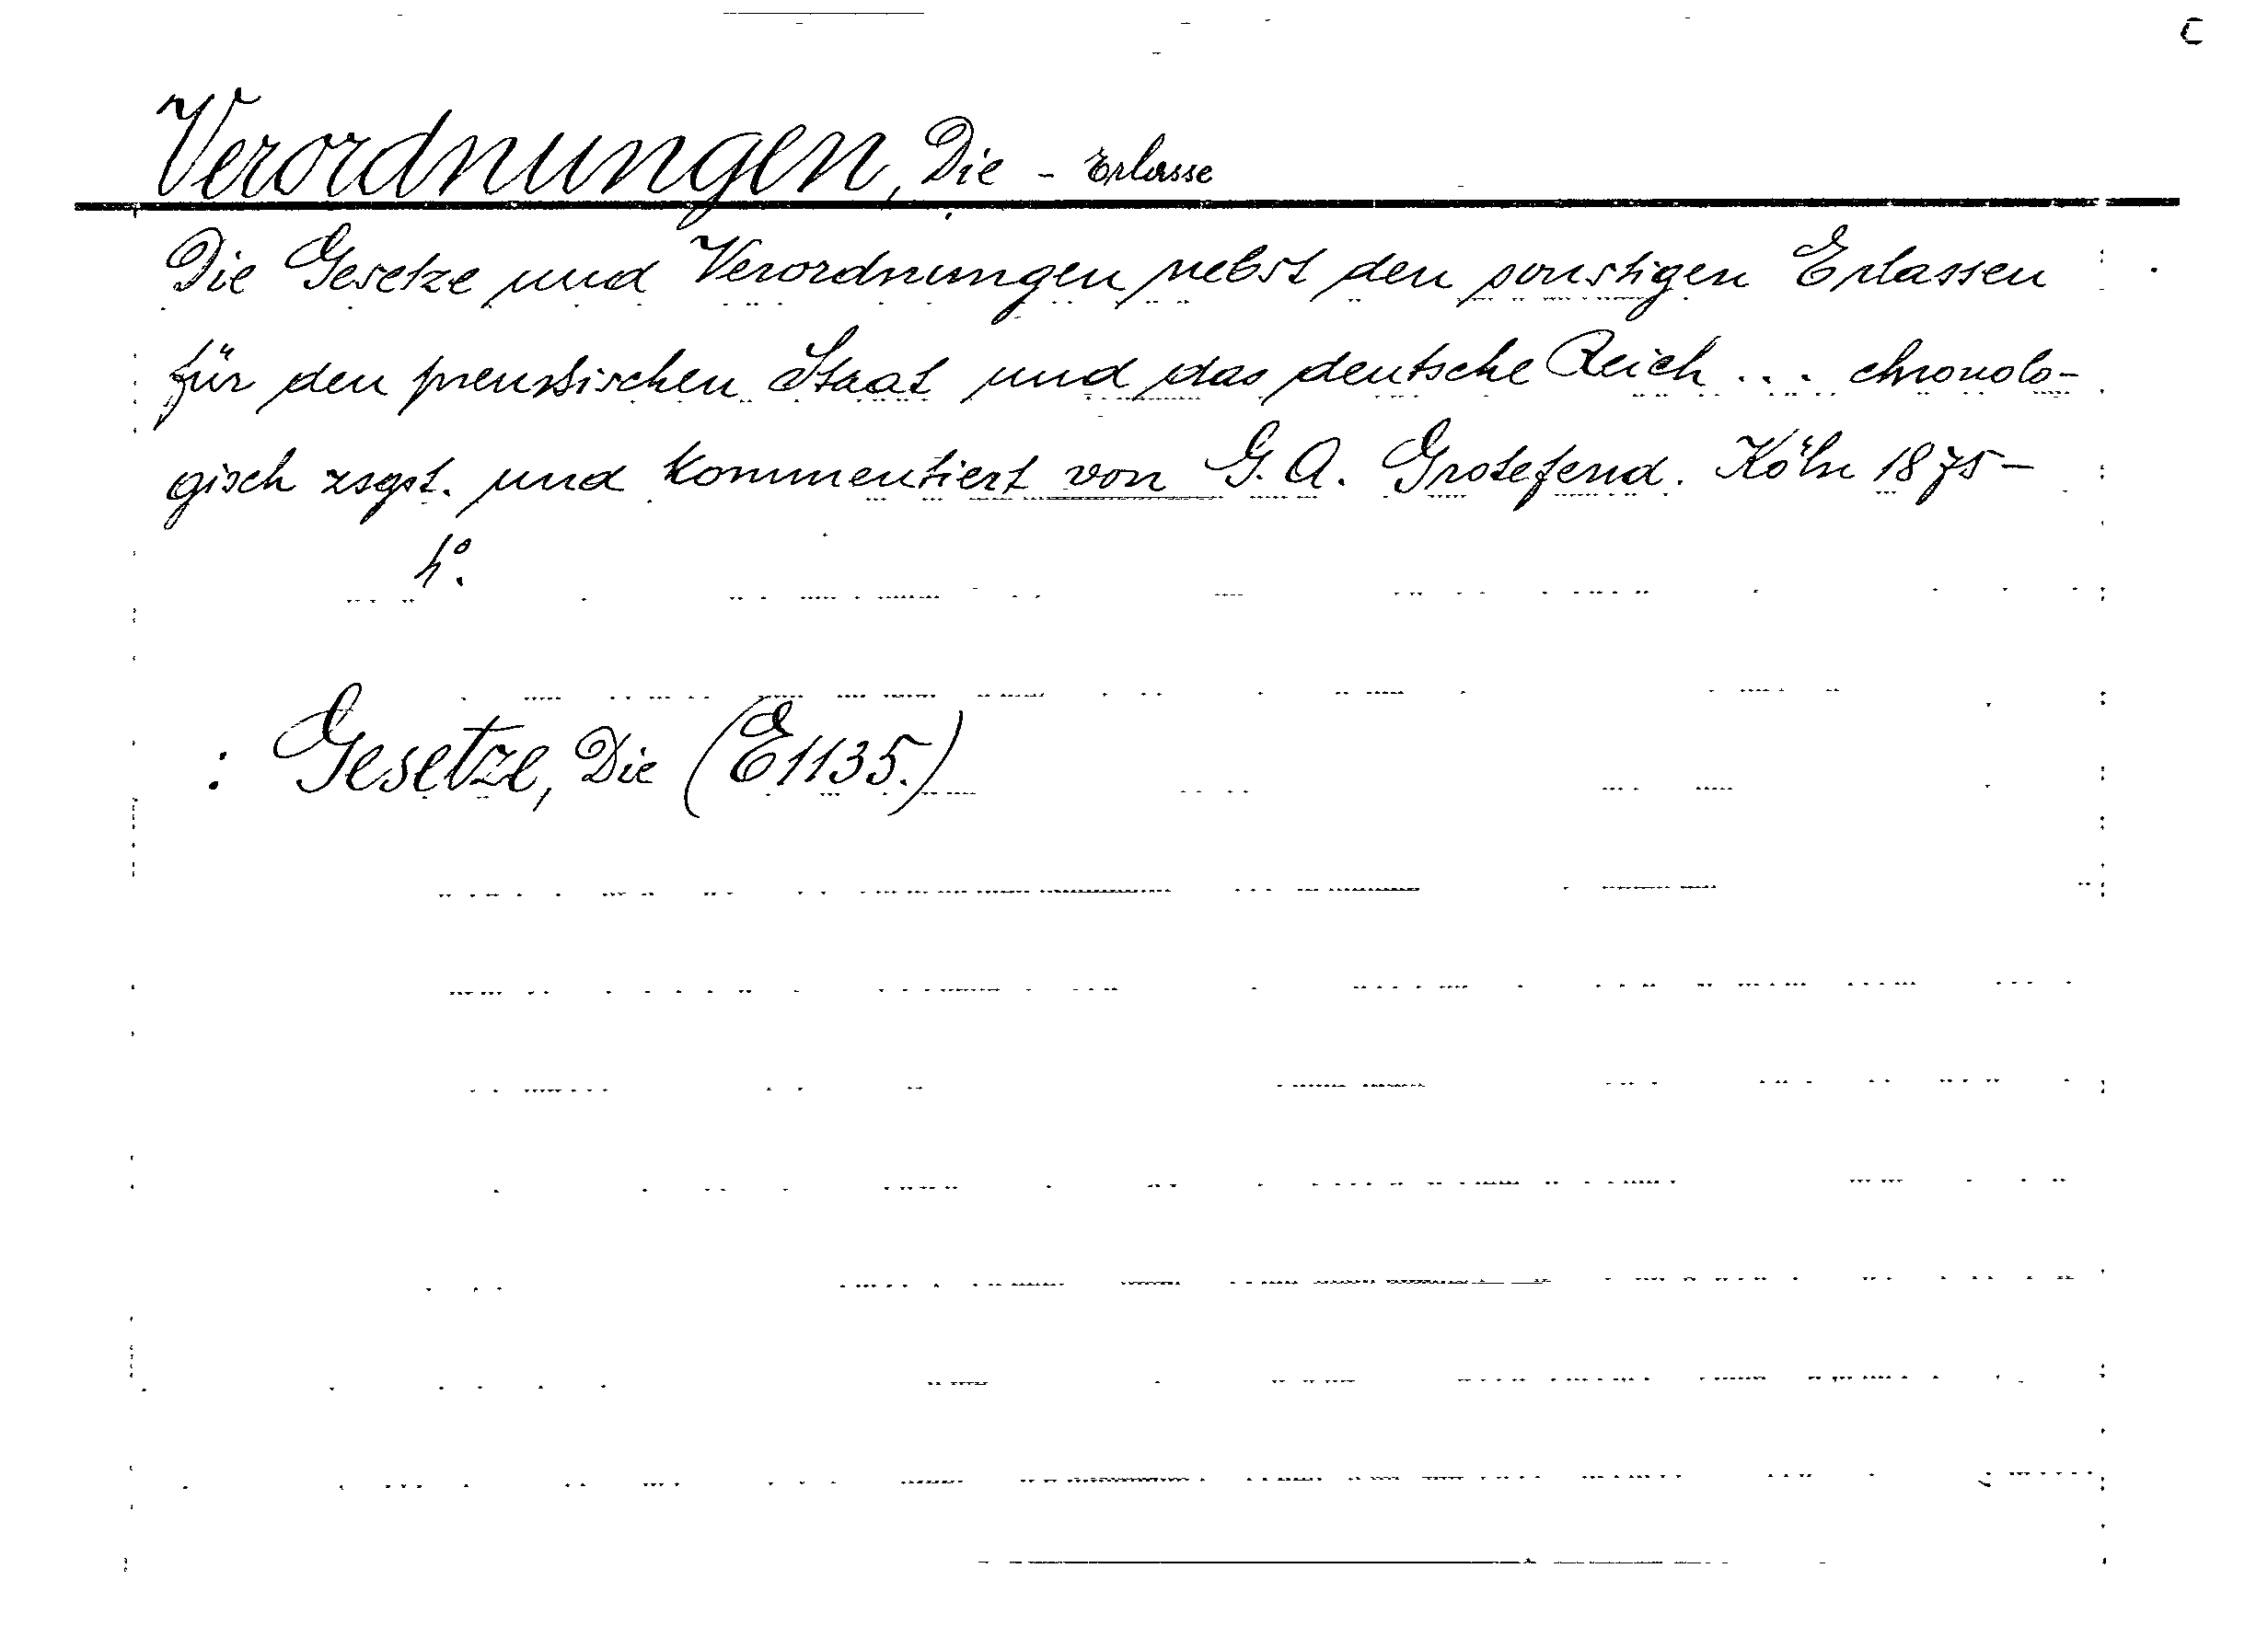 Verordnungen, Die - Erlasse
Die Gesetze und Verordnungen nebst den sonstigen Erlassen
für den preussischen Staat und das deutsche Reich ... chronolo-
gisch zsgst. und kommentiert von G. A. Grotefend. Köln 1875-
4°.
: Gesetze, Die (E1135.)